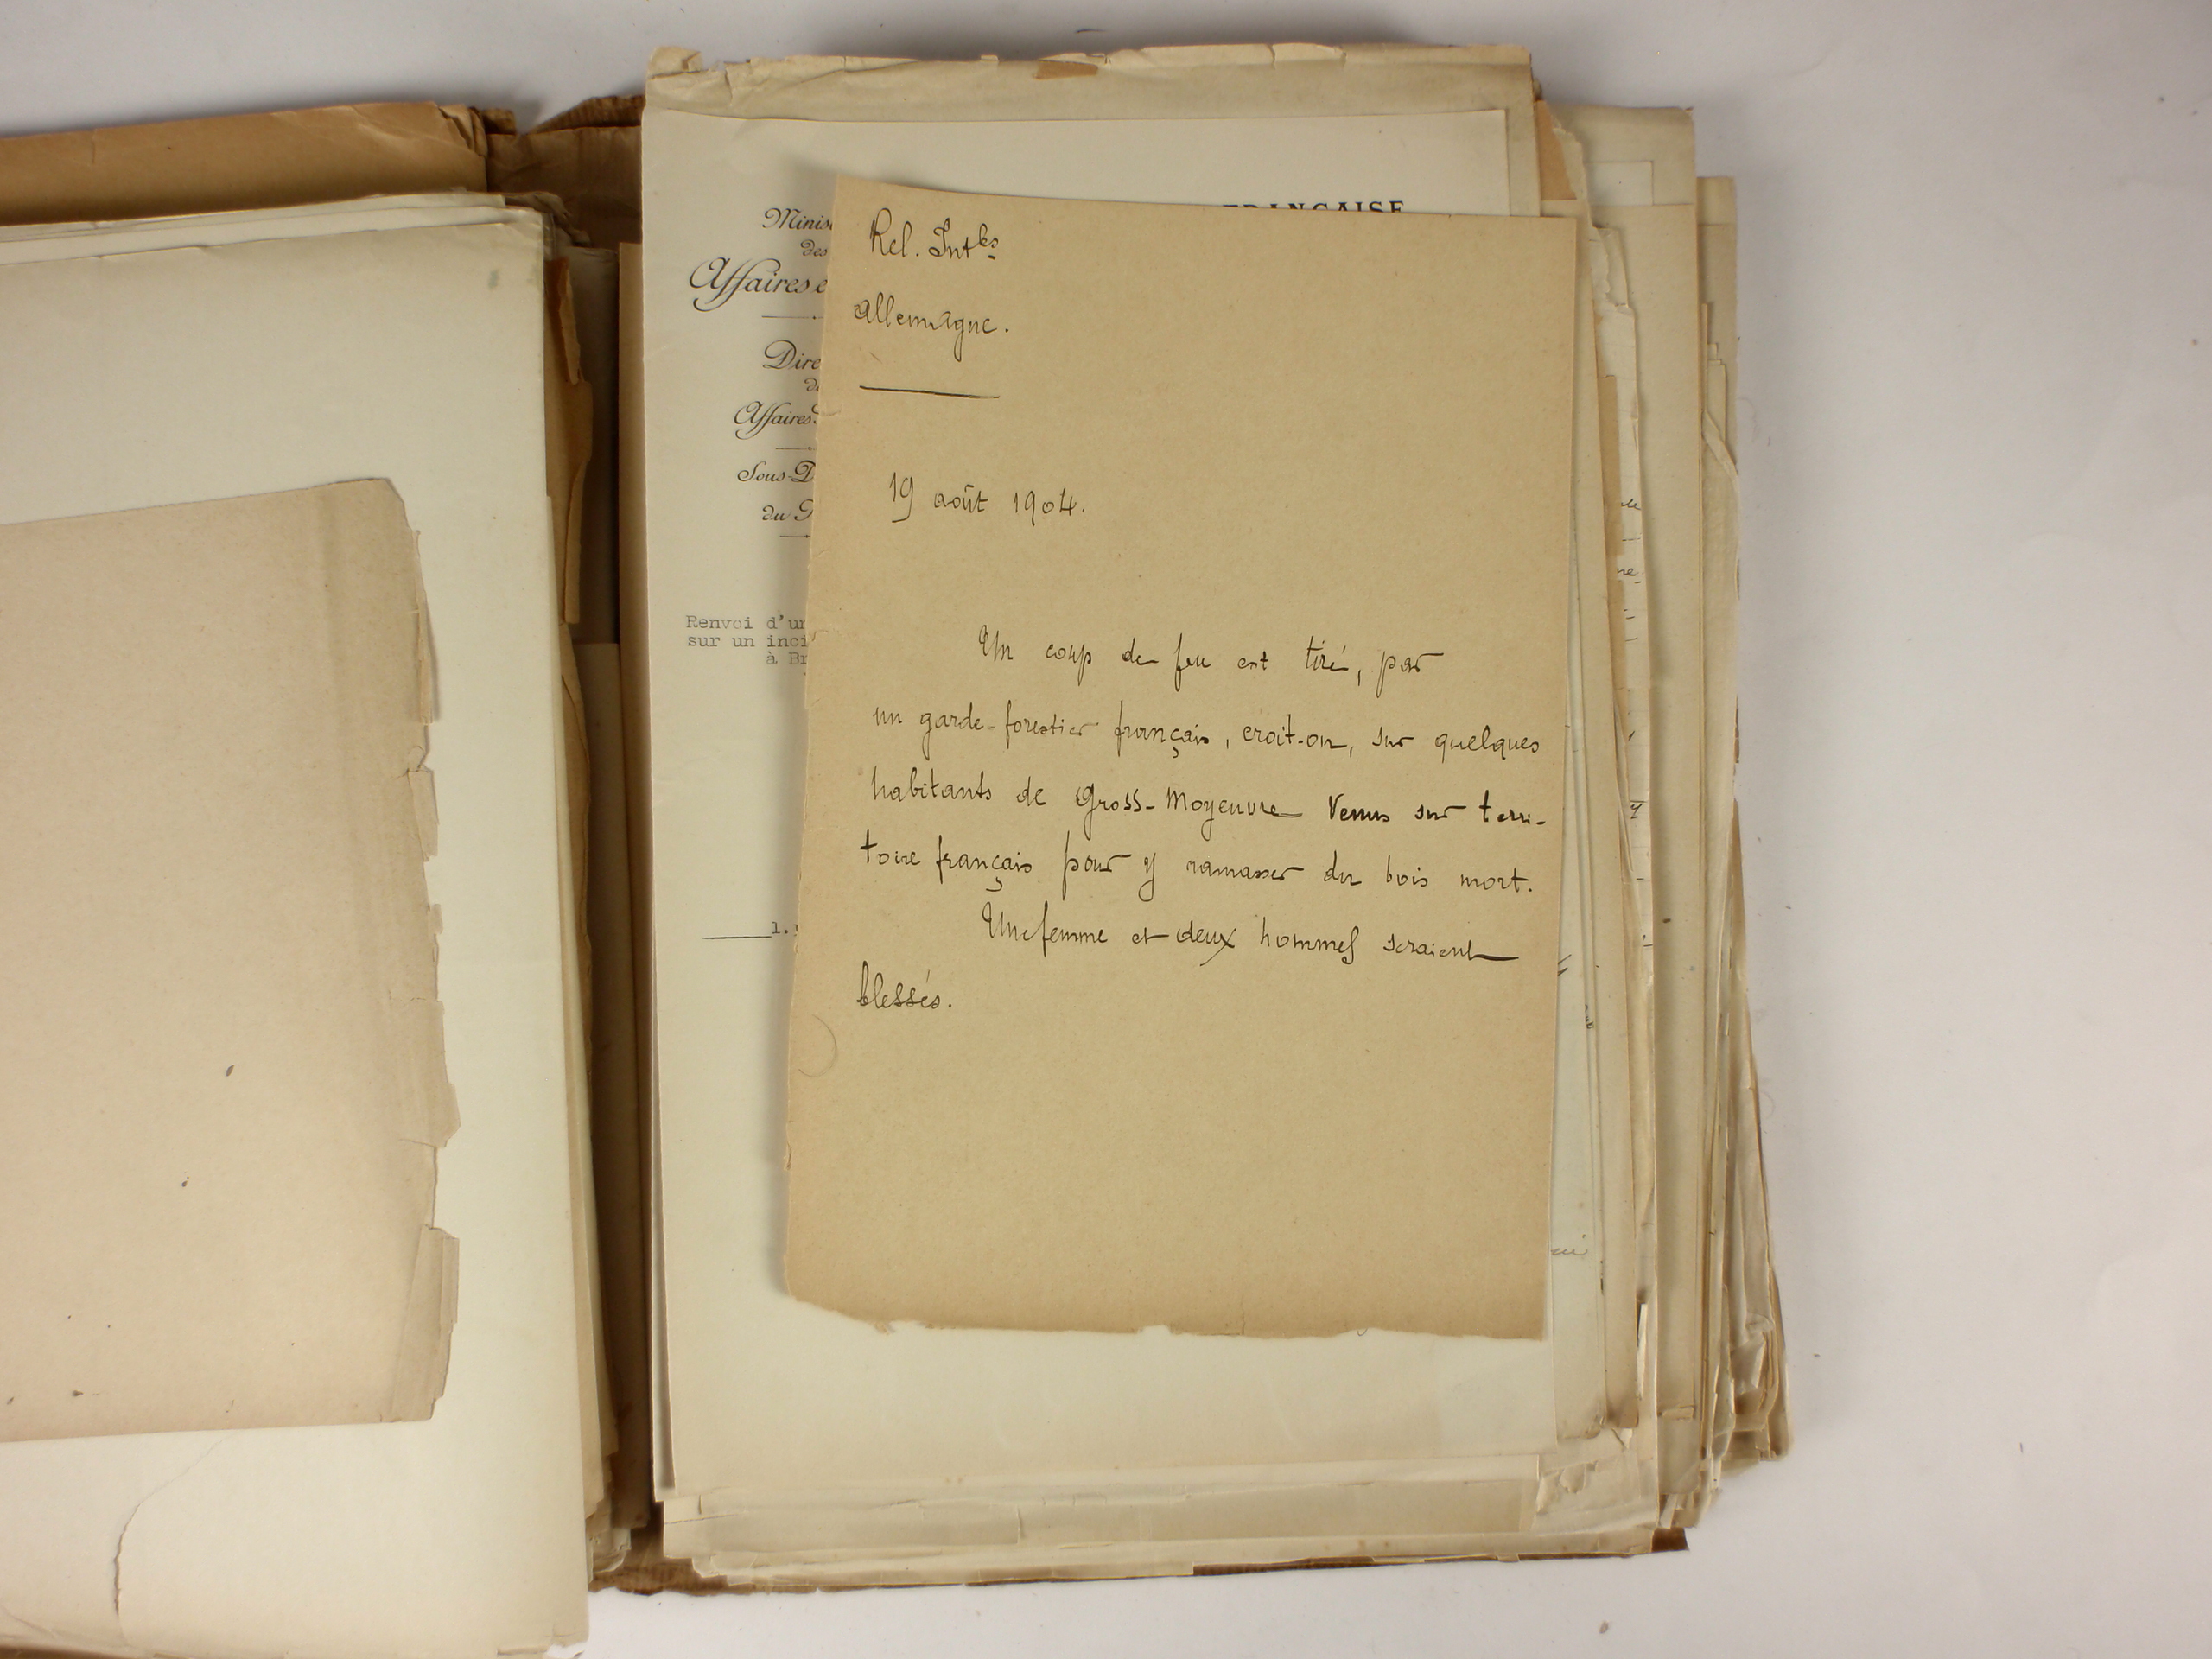 FRANÇAISE
Minis
des
Affaires e
Dire
Affaires
Sous-D
du
Renvoi d'un
sur un inci
à Br
1.
Rel. Intles
Allemagne.
19 août 1904.
Un coup de feu est tiré, par
un garde-forestier français, croit-on, sur quelques
habitants de Gross-Moyeuvre venus sur terri-
toire français pour y ramasser du bois mort.
Une femme et deux hommes seraient
blessés.